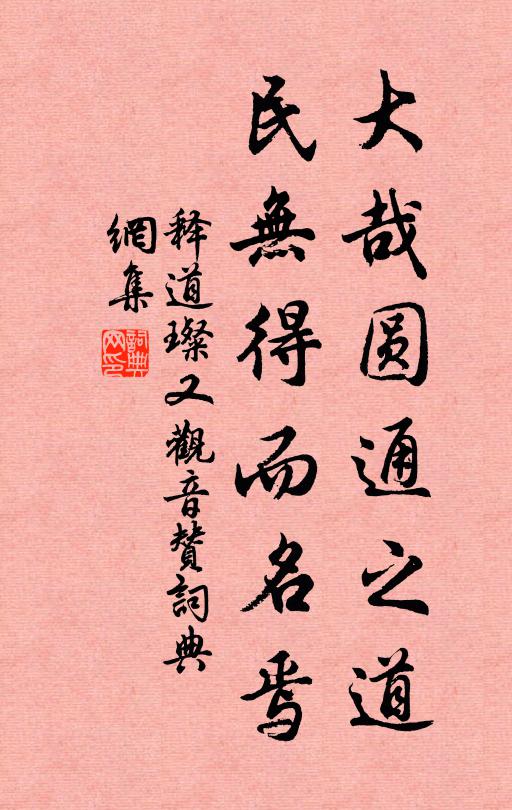 大哉圆通之道
民無得而名焉
释道璨又觀音贊詞典
網集
詞典网印